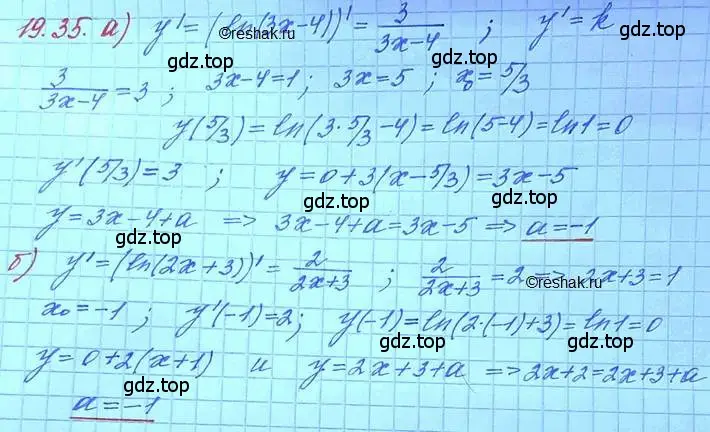 19.35. а) y' = (ln(3x-4))' = 3/(3x-4) ; y' = k
3/(3x-4) = 3 ; 3x-4=1 ; 3x=5 ; x₀ = 5/3
y(5/3) = ln(3·5/3-4) = ln(5-4) = ln1 = 0
y'(5/3) = 3 ; y = 0+3(x-5/3) = 3x-5
y = 3x-4+a => 3x-4+a = 3x-5 => a = -1
б) y' = (ln(2x+3))' = 2/(2x+3) ; 2/(2x+3) = 2 => 2x+3 = 1
x₀ = -1 ; y'(-1) = 2 ; y(-1) = ln(2·(-1)+3) = ln1 = 0
y = 0+2(x+1) и y = 2x+3+a => 2x+2 = 2x+3+a
a = -1
©reshak.ru
gdz.top
gdz.top
gdz.top
©reshak.ru
gdz.top
gdz.top
gdz.top
gdz.top
gdz.top
gdz.top
gdz.top
©reshak.ru
gdz.top
gdz.top
gdz.top
gdz.top